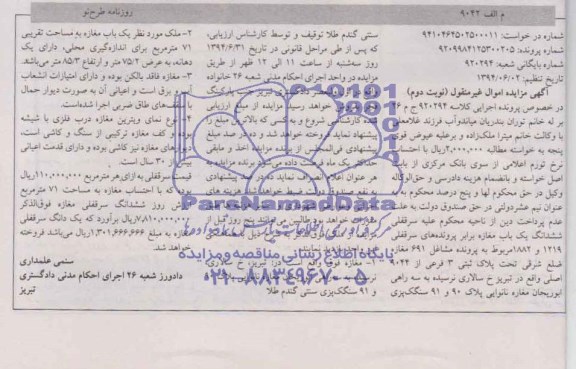 م الف ۹۰۴۲
روزنامه طرح‌نو
شماره در خواست: ۹۴۱۰۴۶۴۵۰۲۵۰۰۰۱۱
شماره پرونده: ۹۲۰۹۹۸۴۱۲۵۳۰۰۲۰۵
شماره بایگانی شعبه: ۹۲۰۲۹۴
تاریخ تنظیم: ۱۳۹۴/۰۶/۰۲
آگهی مزایده اموال غیرمنقول (نوبت دوم)
در خصوص پرونده اجرایی کلاسه ۹۲۰۲۹۴ ج م ۲۶
بر له خانم توران بندریان میاندوآب فرزند غلامعلی
با وکالت خانم میترا ملک‌زاده و برعلیه عیوضی قوی
پنجه به خواسته مطالبه ۴،۰۰۰،۰۰۰ریال با احتساب
نرخ تورم اعلامی از سوی بانک مرکزی از بابت
اصل خواسته و بانضمام هزینه دادرسی و حق‌الوکاله
وکیل در حق محکوم لها و پنج درصد محکوم به به
عنوان نیم عشردولتی در حق صندوق دولت به علت
عدم پرداخت دین از ناحیه محکوم علیه سرقفلی
ششدانگ یک باب مغازه برابر پرونده‌های سرقفلی
۱۲۱۹ و ۱۸۸۲مربوط به پرونده مشاغل ۶۹۱ مغازه
ضلع شرقی تحت پلاک ثبتی ۳ فرعی از ۹۰۲۴
اصلی واقع در تبریز خ سالاری نرسیده به سه راهی
ابوریحان مغازه نانوایی پلاک ۹۰ و ۹۱ سنگک‌پزی
سنتی گندم طلا توقیف و توسط کارشناس ارزیابی،
که پس از طی مراحل قانونی در تاریخ ۱۳۹۴/۶/۳۱
روز سه‌شنبه از ساعت ۱۱ الی ۱۲ ظهر از طریق
مزایده در واحد اجرای احکام مدنی شعبه ۲۶ خانواده
خواهد رسید مزایده از مبلغ ارزیابی
شده کارشناسی شروع و به کسی که بالاترین مبلغ را
پیشنهاد نماید فروخته خواهد شد و ده در صد مبلغ
پیشنهادی فی‌المجلس از برنده مزایده اخذ و مابقی
حداکثر یک ماه فرصت داده می‌شود برنده مزایده به
هر عنوان اعلام انصراف نماید ده در صد پیشنهادی
به نفع صندوق دولت ضبط خواهد شد و هزینه های
۱- مغازه فوق واقع است در تبریز، خ سالاری
و ۹۱ سنگک‌پزی سنتی گندم طلا
۲- ملک مورد نظر یک باب مغازه به مساحت تقریبی
۷۱ مترمربع برای اندازه‌گیری محلی، دارای یک
دهانه، به عرض ۷۵/۲ متر و ارتفاع ۸۵/۳ متر می‌باشد
۳- مغازه فاقد بالکن بوده و دارای امتیازات انشعاب
آب و برق است و اعیانی آن به صورت دیوار حمال
با سقف‌های طاق ضربی اجرا شده‌است.
۴- نوع نمای ویترین مغازه درب فلزی با شیشه
بوده و کف مغازه ترکیبی از سنگ و کاشی است،
دیوارهای مغازه نیز کاشی بوده و دارای قدمت اعیانی
بیش از ۳۰ سال است.
قیمت سرقفلی به ازای هر مترمربع ۱۱۰،۰۰۰،۰۰۰ریال
بوده که با احتساب مغازه به مساحت ۷۱ مترمربع
ارزش روز ششدانگ سرقفلی مغازه فوق‌الذکر
۷،۸۱۰،۰۰۰،۰۰۰ریال برآورد که یک دانگ سرقفلی
مغازه به مبلغ ۱،۳۰۱،۶۶۶،۶۶۶ریال می‌باشد فروخته
خواهد شد.
سنمی علمداری
دادورز شعبه ۲۶ اجرای احکام مدنی دادگستری
تبریز
ParsNamadData
پایگاه اطلاع رسانی مناقصه و مزایده
۰۲۱-۸۸۳۴۹۶۷۰-۵